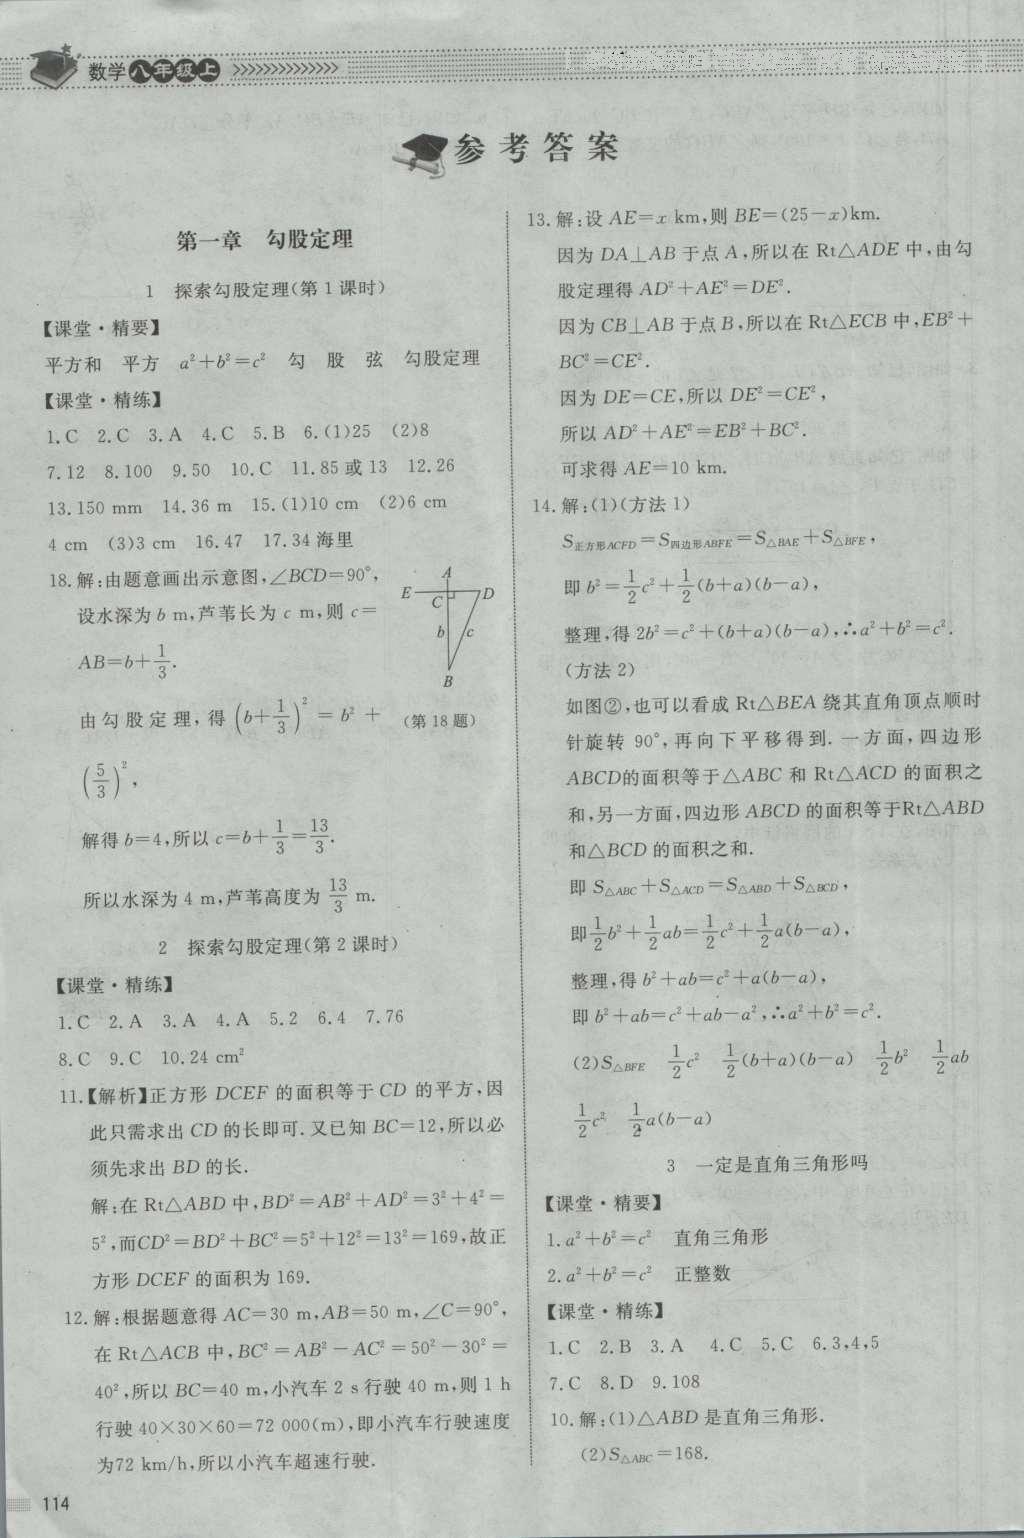 数学八年级上
参考答案
第一章 勾股定理
1 探索勾股定理(第1课时)
【课堂·精要】
平方和 平方 a²+b²=c² 勾 股 弦 勾股定理
【课堂·精练】
1.C 2.C 3.A 4.C 5.B 6.(1)25 (2)8
7.12 8.100 9.50 10.C 11.85或13 12.26
13.150 mm 14.36 m 15.(1)10 cm (2)6 cm
4 cm (3)3 cm 16.47 17.34海里
18.解:由题意画出示意图,∠BCD=90°,
设水深为b m,芦苇长为c m,则c=
AB=b+1/3.
由勾股定理,得(b+1/3)²=b²+
(5/3)²,
A
E C D
b c
B
(第18题)
解得b=4,所以c=b+1/3=13/3.
所以水深为4 m,芦苇高度为13/3 m.
2 探索勾股定理(第2课时)
【课堂·精练】
1.C 2.A 3.A 4.A 5.2 6.4 7.76
8.C 9.C 10.24 cm²
11.【解析】正方形DCEF的面积等于CD的平方,因
此只需求出CD的长即可.又已知BC=12,所以必
须先求出BD的长.
解:在Rt△ABD中,BD²=AB²+AD²=3²+4²=
5²,而CD²=BD²+BC²=5²+12²=13²=169,故正
方形DCEF的面积为169.
12.解:根据题意得AC=30 m,AB=50 m,∠C=90°,
在Rt△ACB中,BC²=AB²-AC²=50²-30²=
40²,所以BC=40 m,小汽车2 s行驶40 m,则1 h
行驶40×30×60=72 000(m),即小汽车行驶速度
为72 km/h,所以小汽车超速行驶.
114
13.解:设AE=x km,则BE=(25-x)km.
因为DA⊥AB于点A,所以在Rt△ADE中,由勾
股定理得AD²+AE²=DE².
因为CB⊥AB于点B,所以在Rt△ECB中,EB²+
BC²=CE².
因为DE=CE,所以DE²=CE²,
所以AD²+AE²=EB²+BC².
可求得AE=10 km.
14.解:(1)(方法1)
S正方形ACFD=S四边形ABFE=S△BAE+S△BFE,
即b²=1/2c²+1/2(b+a)(b-a),
整理,得2b²=c²+(b+a)(b-a),∴a²+b²=c².
(方法2)
如图②,也可以看成Rt△BEA绕其直角顶点顺时
针旋转90°,再向下平移得到.一方面,四边形
ABCD的面积等于△ABC和Rt△ACD的面积之
和,另一方面,四边形ABCD的面积等于Rt△ABD
和△BCD的面积之和.
即S△ABC+S△ACD=S△ABD+S△BCD,
即1/2b²+1/2ab=1/2c²+1/2a(b-a),
整理,得b²+ab=c²+a(b-a),
即b²+ab=c²+ab-a²,∴a²+b²=c².
(2)S△BFE 1/2c² 1/2(b+a)(b-a) 1/2b² 1/2ab
1/2c² 1/2a(b-a)
3 一定是直角三角形吗
【课堂·精要】
1.a²+b²=c² 直角三角形
2.a²+b²=c² 正整数
【课堂·精练】
1.C 2.B 3.A 4.C 5.C 6.3,4,5
7.C 8.D 9.108
10.解:(1)△ABD是直角三角形.
(2)S△ABC=168.